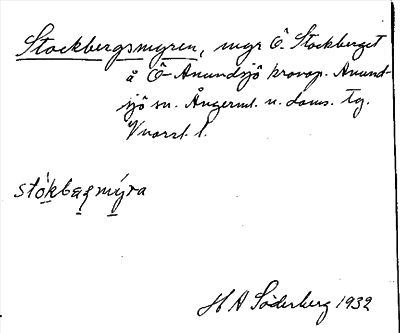 Stockbergsmyren, myr Ö. Stockberget
å Ö Anundsjö kronop. Anund-
sjö sn. Ångerml. n. doms. Tg.
l.
stókbærmýra
H A Söderberg 1932